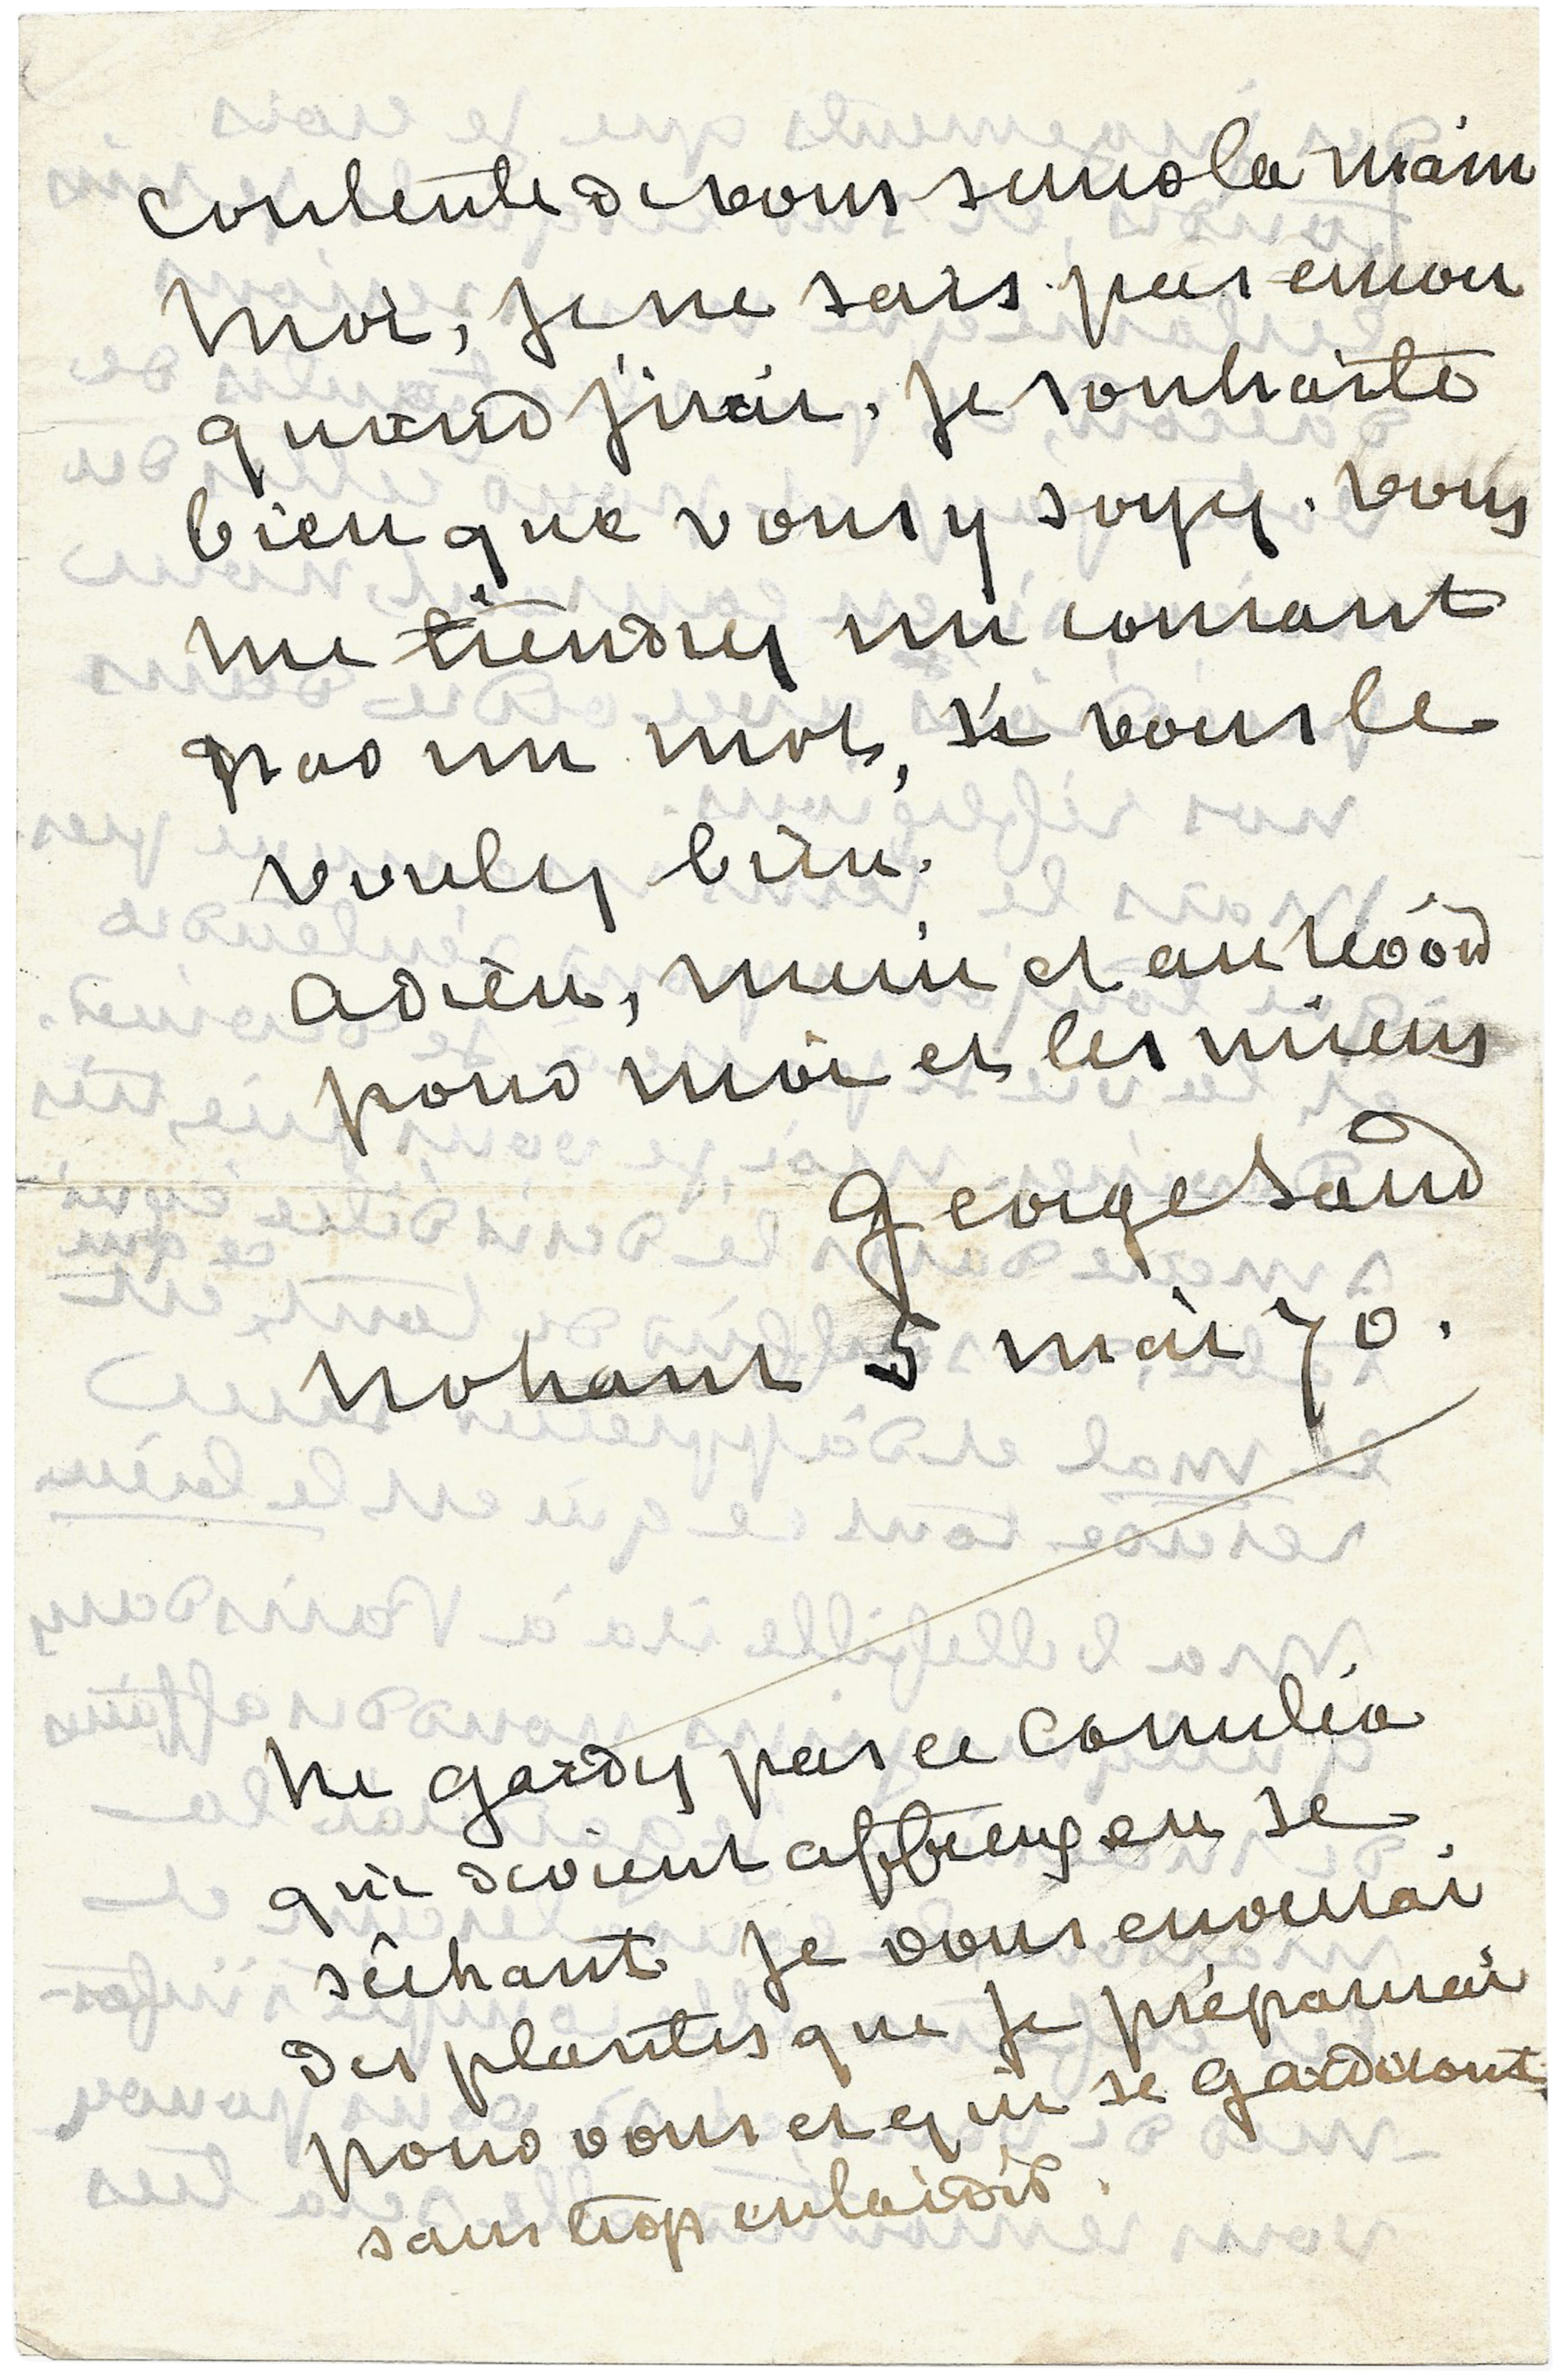 contente de vous serrer la main
Moi, je ne sais pas encor
quand j'irai. je souhaite
bien que vous y soyez. vous
me tiendrez au courant
par un mot, si vous le
voulez bien.
adieu, merci et au revoir
pour moi et les miens
George Sand
Nohant 5 mai 70.
Ne gardez pas ce camelia
qui devient affreux en se
séchant je vous enverrai
des plantes que je préparerai
pour vous et qui se garderont
sans trop enlaidir.